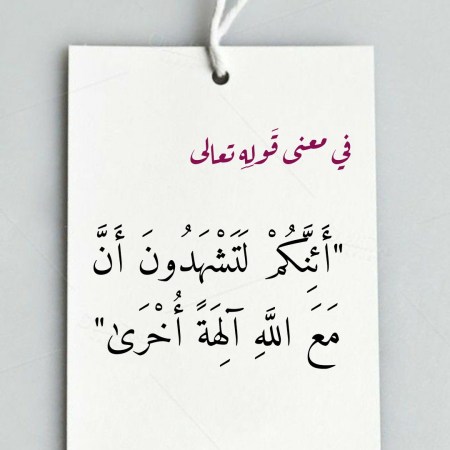 في معنى قَولِهِ تعالى
"أَئِنَّكُمْ لَتَشْهَدُونَ أَنَّ
مَعَ اللَّهِ آلِهَةً أُخْرَىٰ"